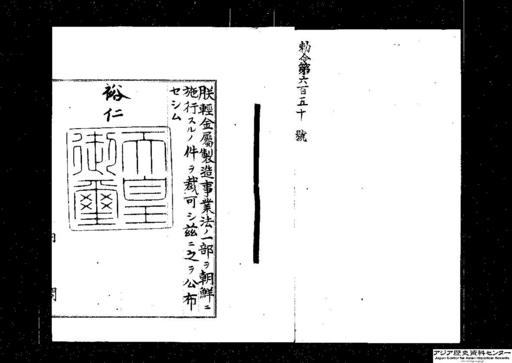 勅令第六百五十號
朕輕金屬製造事業法ノ一部ヲ朝鮮ニ
施行スルノ件ヲ裁可シ茲ニ之ヲ公布
セシム
裕仁
天皇
御璽
アジア歴史資料センター
Japan Center for Asian Historical Records